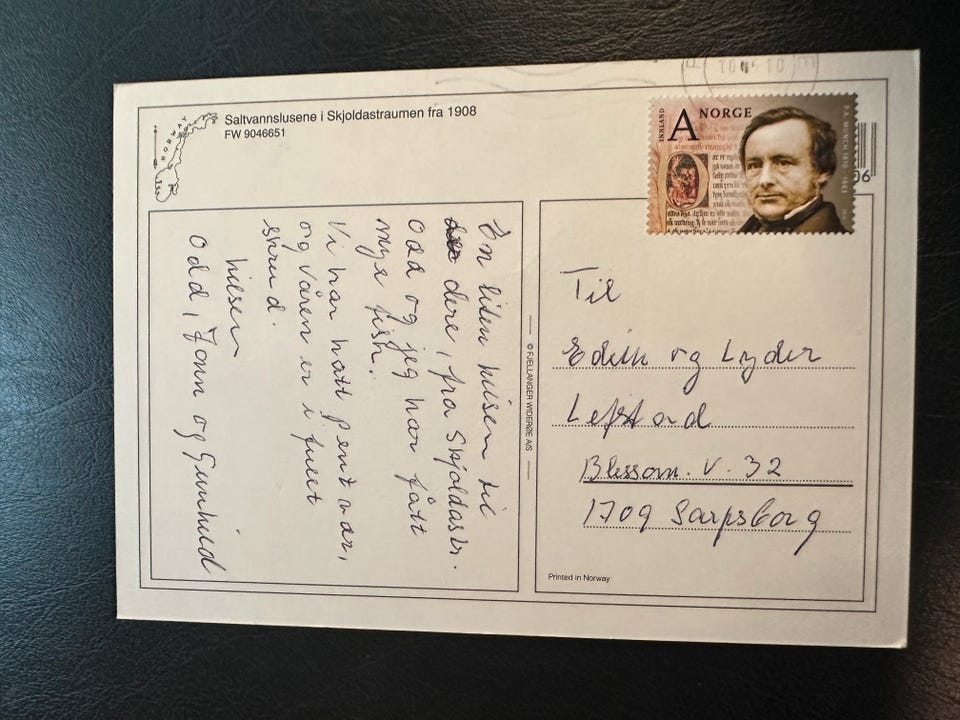 Saltvannslusene i Skjoldastraumen fra 1908
FW 9046651
NORWAY
INNLAND
A NORGE
P.A. MUNCH 1810 1863
En liten hilsen til
dere, fra Skjoldastr.
Odd og jeg har fått
mye fish.
Vi har hatt pent vær,
og våren er i fullt
skrud.
hilsen
Odd, Jonn og Gunhild
© FJELLANGER WIDERØE A/S
Til
Edith og Lyder
Leftad
Blessom. V. 32
1709 Sarpsborg
Printed in Norway